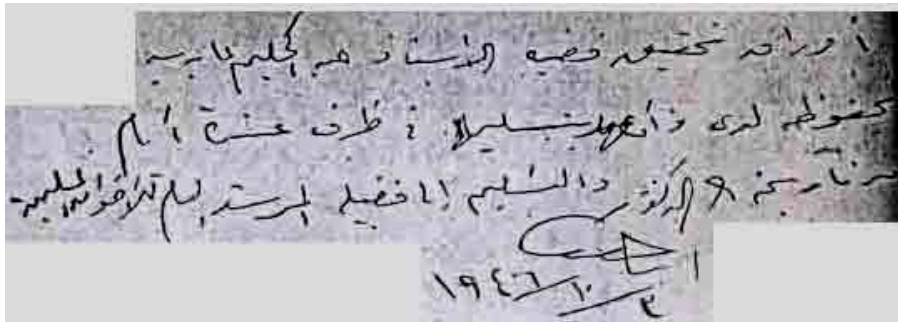 أوراق تحقيق قضية الأستاذ عبد الحكيم عابدين
محفوظة لدى وأتعهد بتسليمها في ظرف عشرة أيام
من تاريخه والتسليم إلى فضيلة المرشد العام للإخوان المسلمين
١٩٤٦/١٠/٣